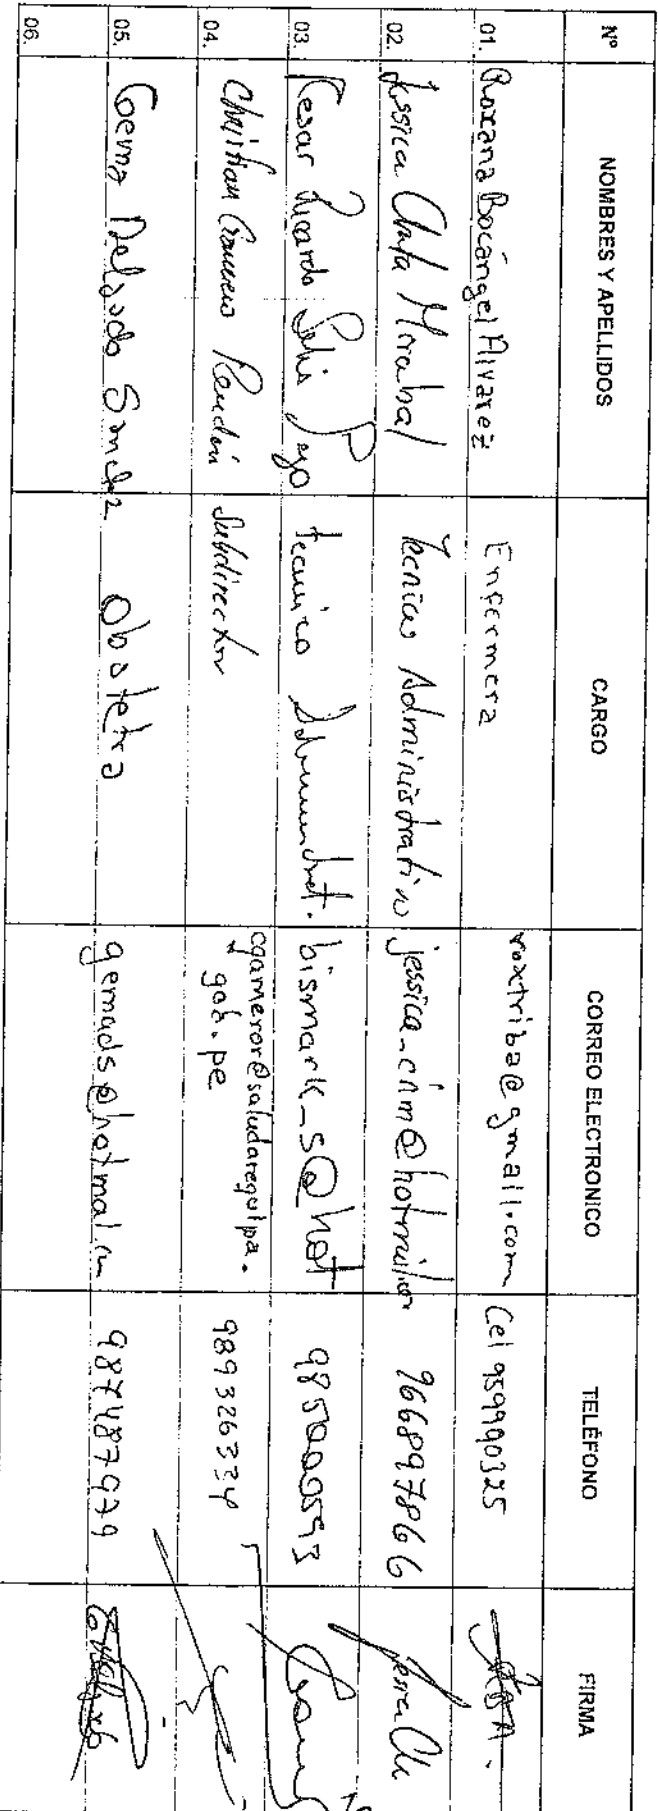 Nº NOMBRES Y APELLIDOS CARGO CORREO ELECTRONICO TELÉFONO FIRMA
01. Roxana Bocángel Alvarez Enfermera roxtriba@gmail.com Cel 959990325
02. Jessica Mirabal Tecnico Administrativo jessica_chm@hotmail.com 966897866
03. Cesar Ricardo Solis tecnico Administrat. bismark_s@hot
04. Christian Gamero Rendón Subdirector cgameror@saludarequipa.
gob.pe 989326334
05. Gema Delgado Sanchez Obstetra gemads@hotmal.cm 987487979
06.